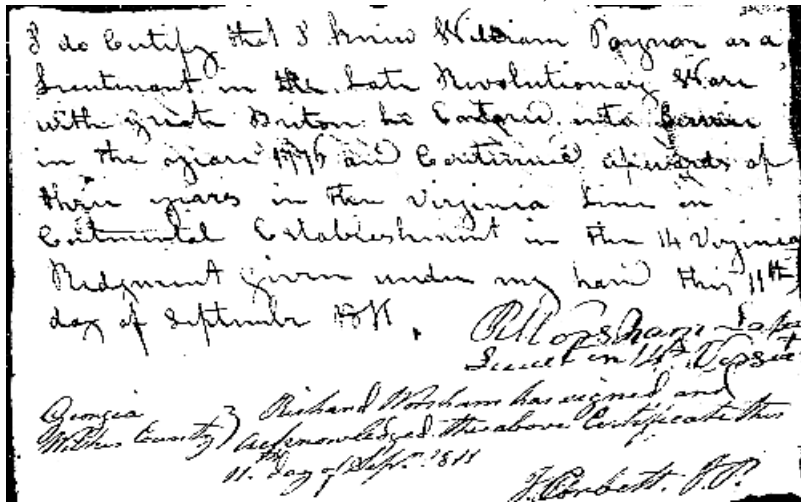 I do Certify that I knew William Poynor as a
Lieutenant in the Late Revolutionary Ware
with Greate Briton he Entered into Service
in the yeare 1776 and Continued upwards of
three years in the Virginia Line on
Continental Establishment in the 14 Virginia
Redgment given under my hand this 11th
day of September 1811.
R Worsham Late
Lieut in 14th Virginia
Georgia
Wilkes County } Richard Worsham has signed and
acknowledged the above Certificate this
11th day of Sepr. 1811
J. Corbett. J.P.